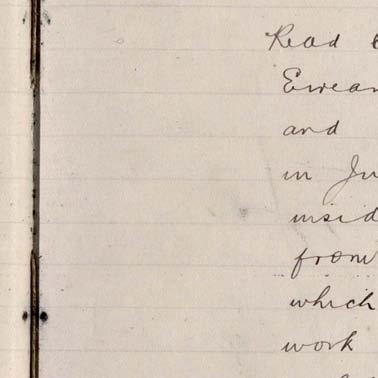 Read
and
in Ju
insid
from
which
work